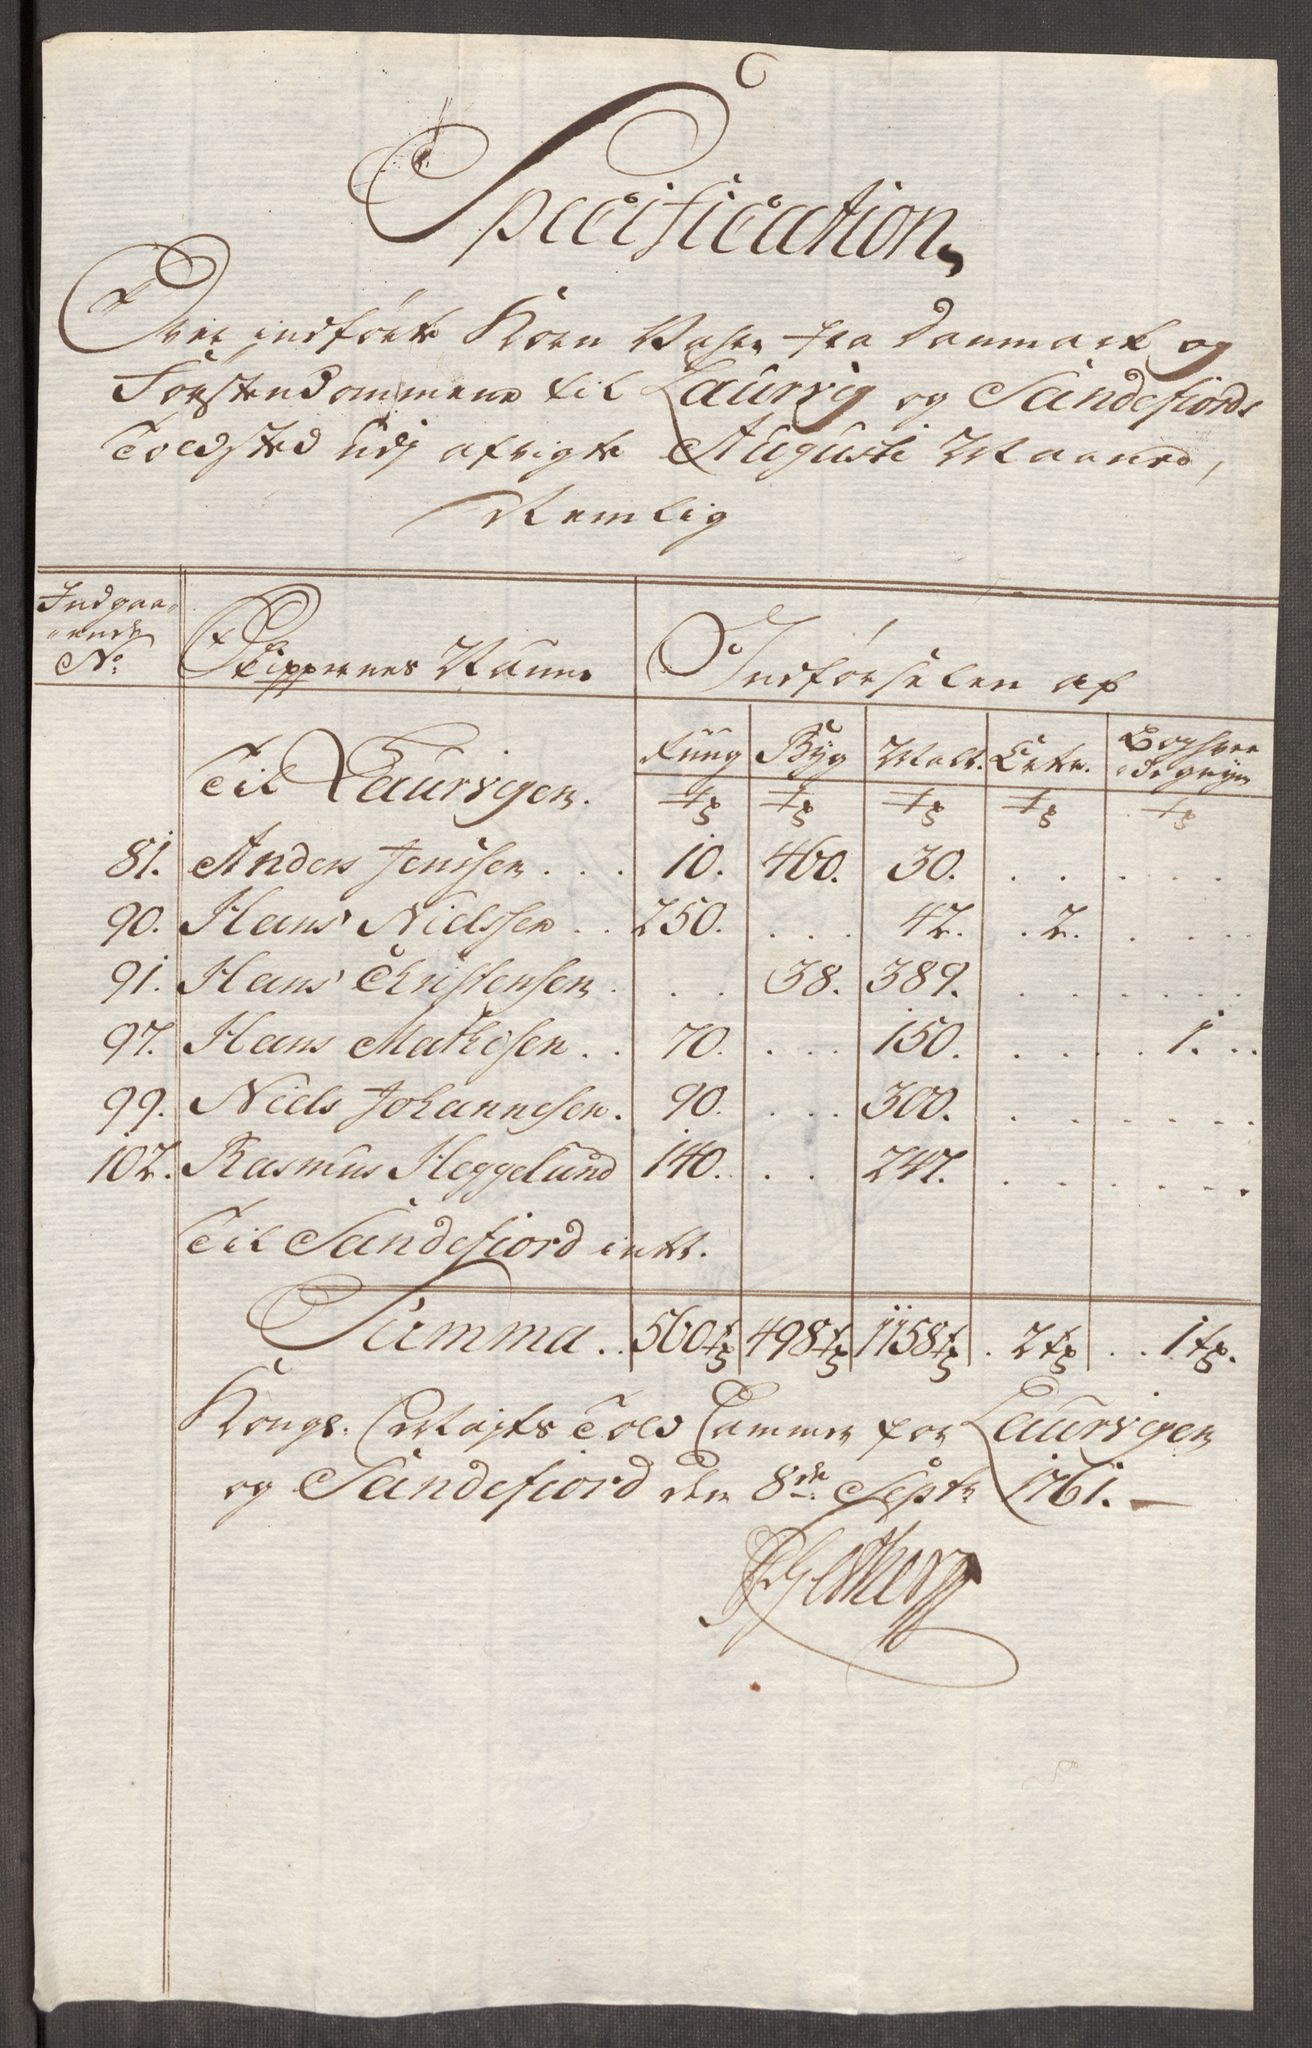 Specification,
Over indførte Korn Vahre fra Danmark og
Førstendommene til Laurvig og Sandefiords
Toldsted udj afvigte Augusti Maaned,
Nemlig
Indgaa-
-ende
No. Skippernes Naune Indførselen af
Til Laurvigen. Rung Byg Malt. Erter. Boghve-
-de gryn
tr tr tr tr tr
81. Anders Jenssen . . . 10. 460. 30. . . . . . .
90. Hans Nielssen . . 250. . . . 42. . 2. . . .
91. Hans Christensen . . . 38. 389. . . . . . .
97. Hans Mathisen . . 70. . . . 150. . . . . 1. . .
99. Niels Johannesen. 90. . . . 300. . . . . . .
102. Rasmus Heggelund 140. . . . 247. . . . . . .
Til Sandefiord intet.
Summa . . 560 tr 498 tr 1158 tr . 2 tr . . 1 tr.
Kongl. Mayts Told Cammer for Laurvigen
og Sandefiord den 8de Septr 1761. —